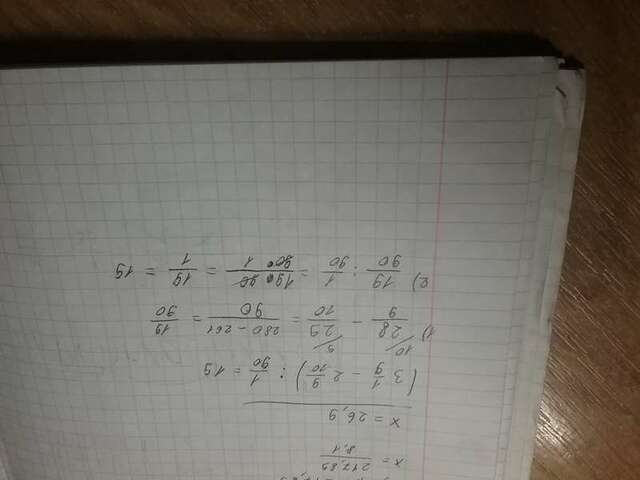 x = 217,89 / 8,1
x = 26,9
(3 1/9 - 2 9/10) : 1/90 = 19
1) 10/ 28/9 - 9/ 29/10 = 280 - 261 / 90 = 19/90
2) 19/90 : 1/90 = 19 · 90 / 90 · 1 = 19/1 = 19